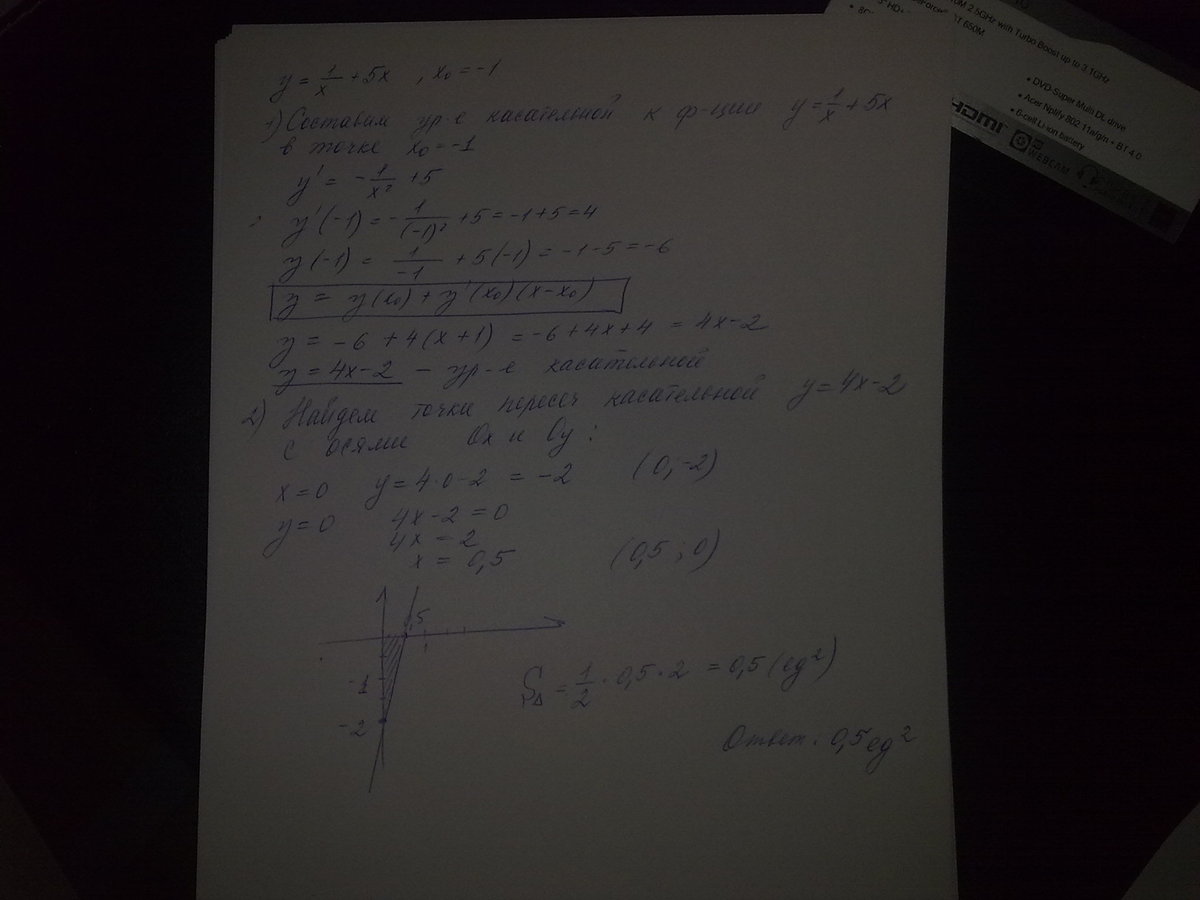 y = 1/x + 5x , x₀ = -1
1) Составим ур-е касательной к ф-ции y = 1/x + 5x
в точке x₀ = -1
y' = -1/x² + 5
y'(-1) = -1/(-1)² + 5 = -1+5 = 4
y(-1) = 1/-1 + 5(-1) = -1-5 = -6
y = y(x₀) + y'(x₀)(x-x₀)
y = -6 + 4(x+1) = -6 + 4x + 4 = 4x-2
y = 4x-2 - ур-е касательной
2) Найдем точки пересеч касательной y = 4x-2
с осями Ox и Oy :
x = 0 y = 4·0-2 = -2 (0; -2)
y = 0 4x-2 = 0
4x = 2
x = 0,5 (0,5 ; 0)
0,5
-1
-2
S△ = 1/2 · 0,5 · 2 = 0,5 (ед²)
Ответ. 0,5 ед²
2.5GHz with Turbo Boost up to 3.1GHz
650M
• DVD-Super Multi DL drive
• Acer Nplify 802.11a/g/n + BT 4.0
• 6-cell Li-ion battery
HDMI
HD WEBCAM